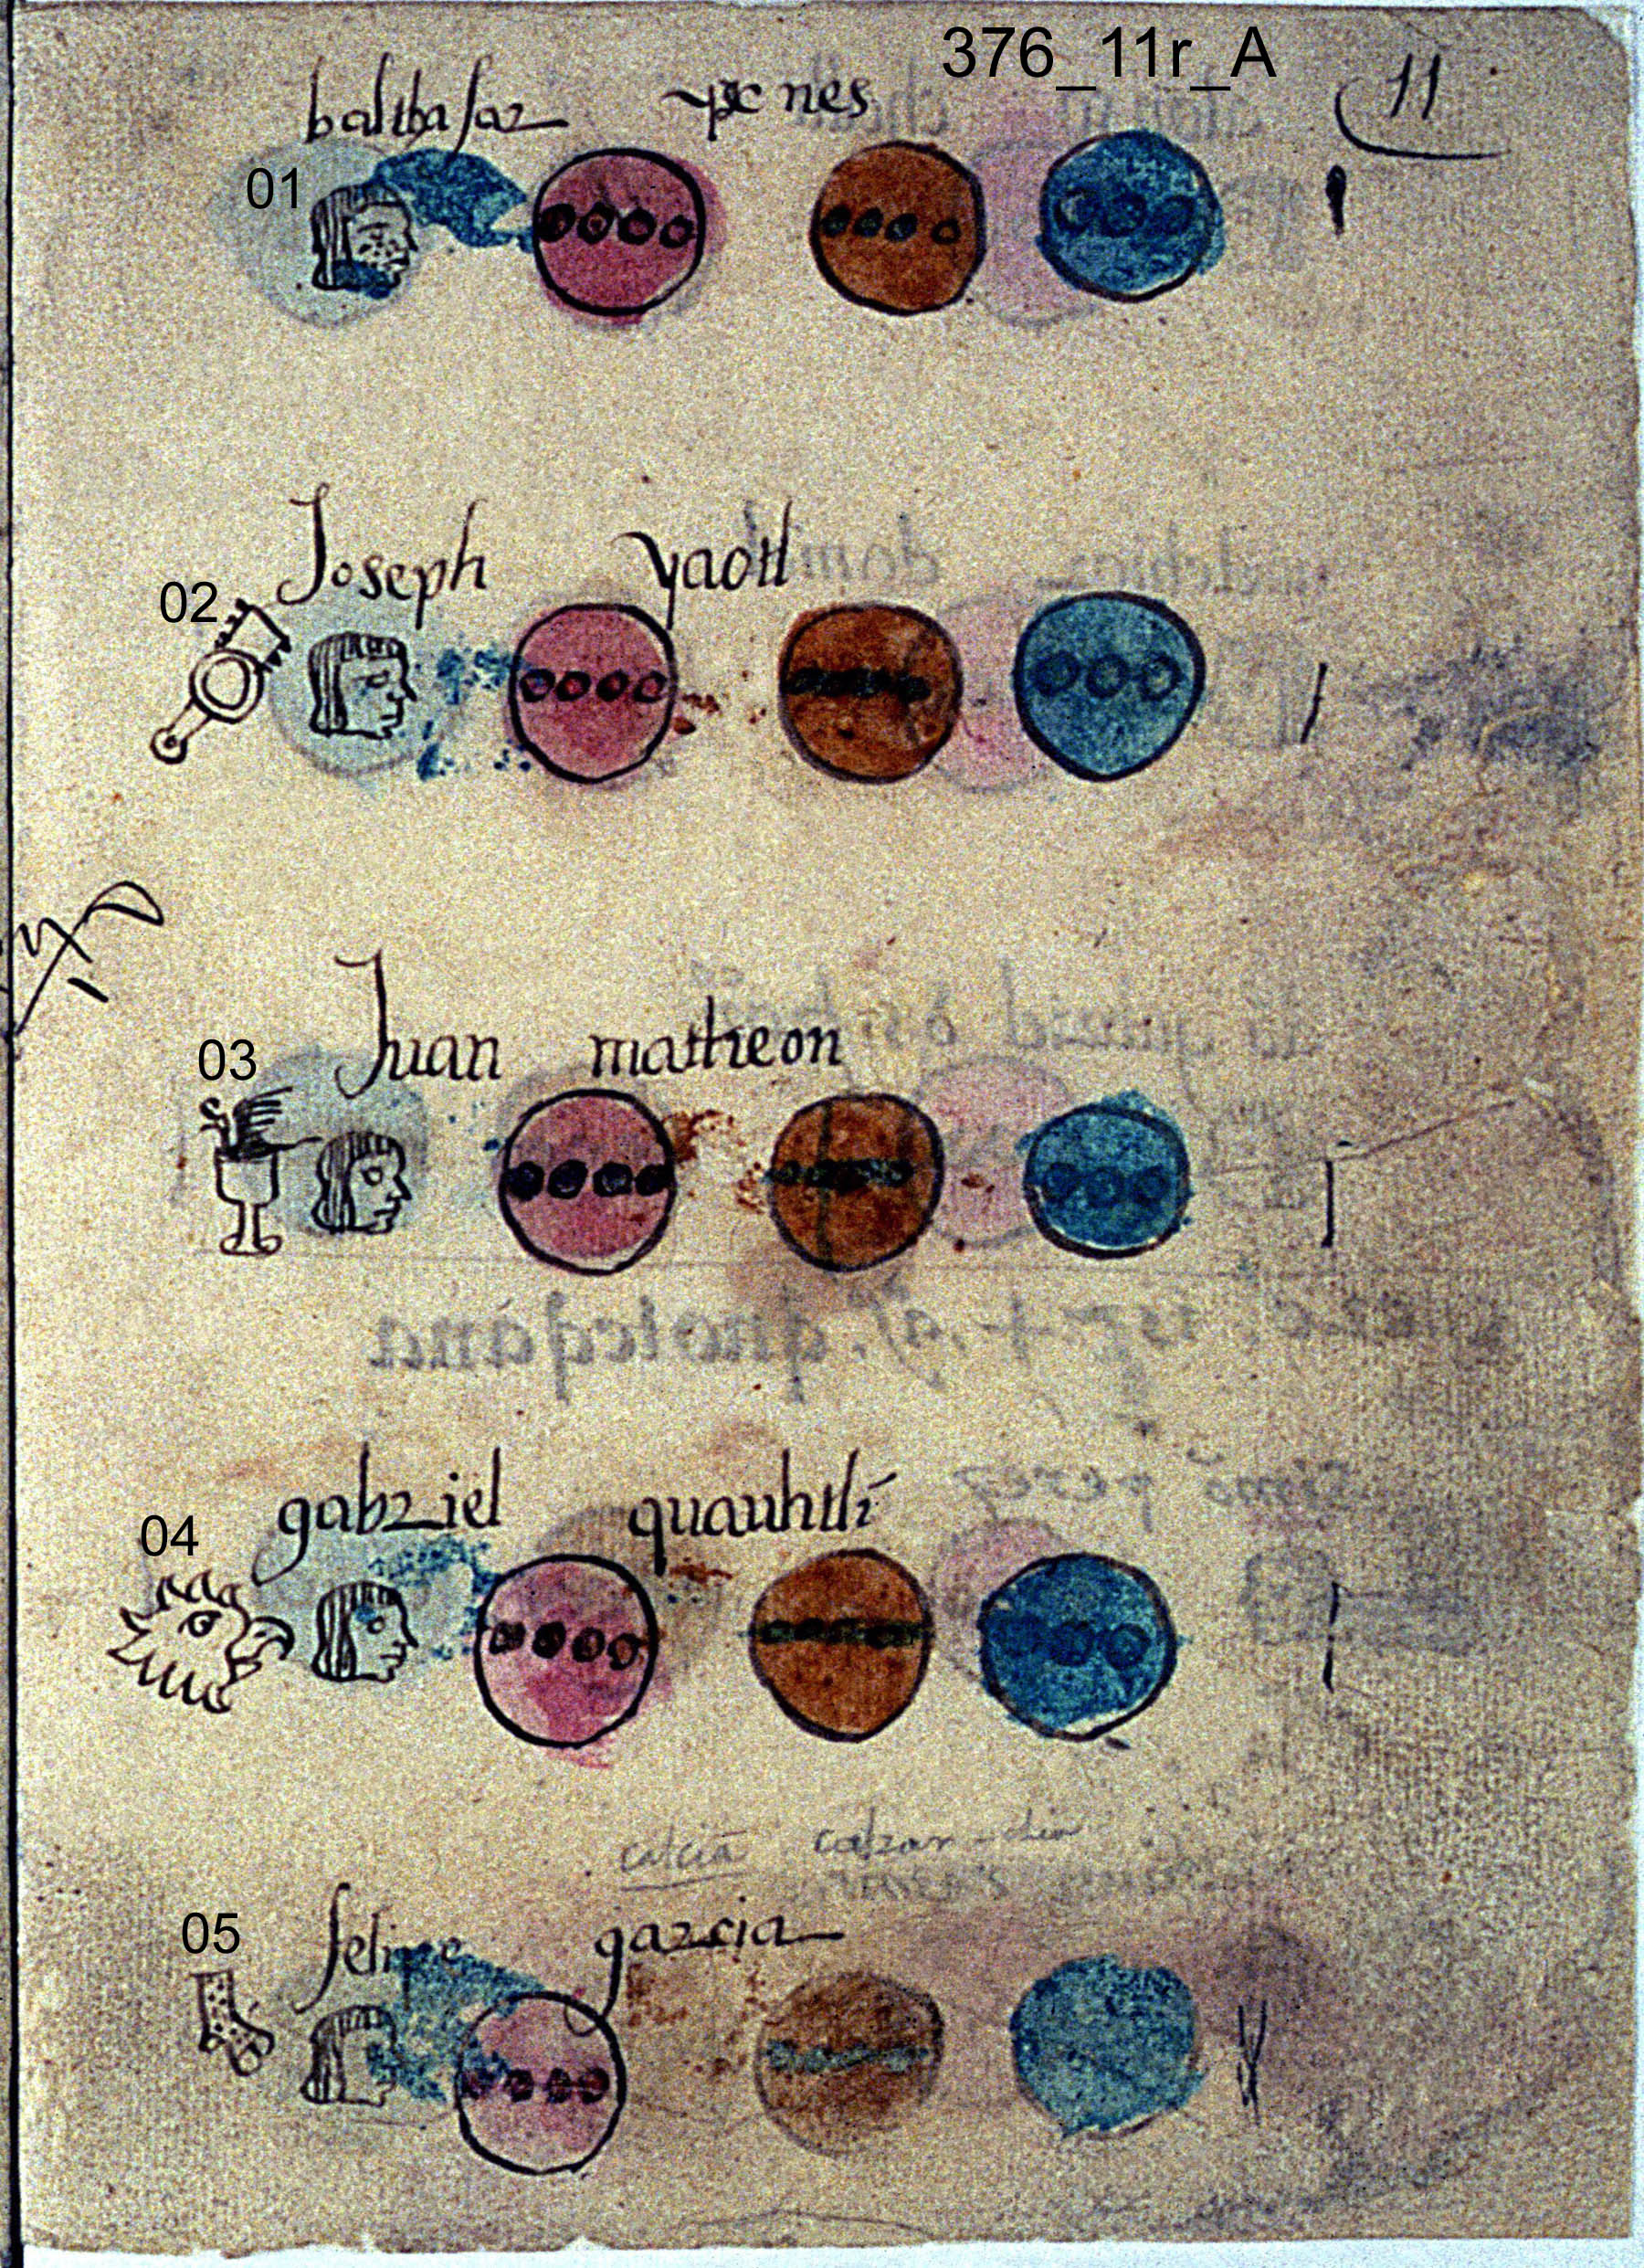 376_11r_A
11
balthasar
01
Joseph yaotl
02
Juan matheon
03
gabriel quauhtli
04
felipe garcia
05